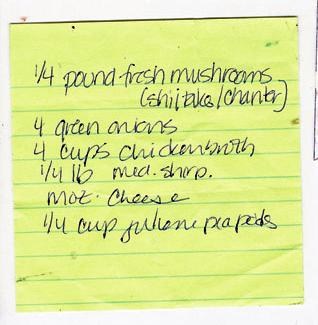 1/4 pound fresh mushrooms
(shiitake/chanter)
4 green onions
4 cups chickenbroth
1/4 lb med. shrp.
moz. cheese
1/4 cup juliene pea pods